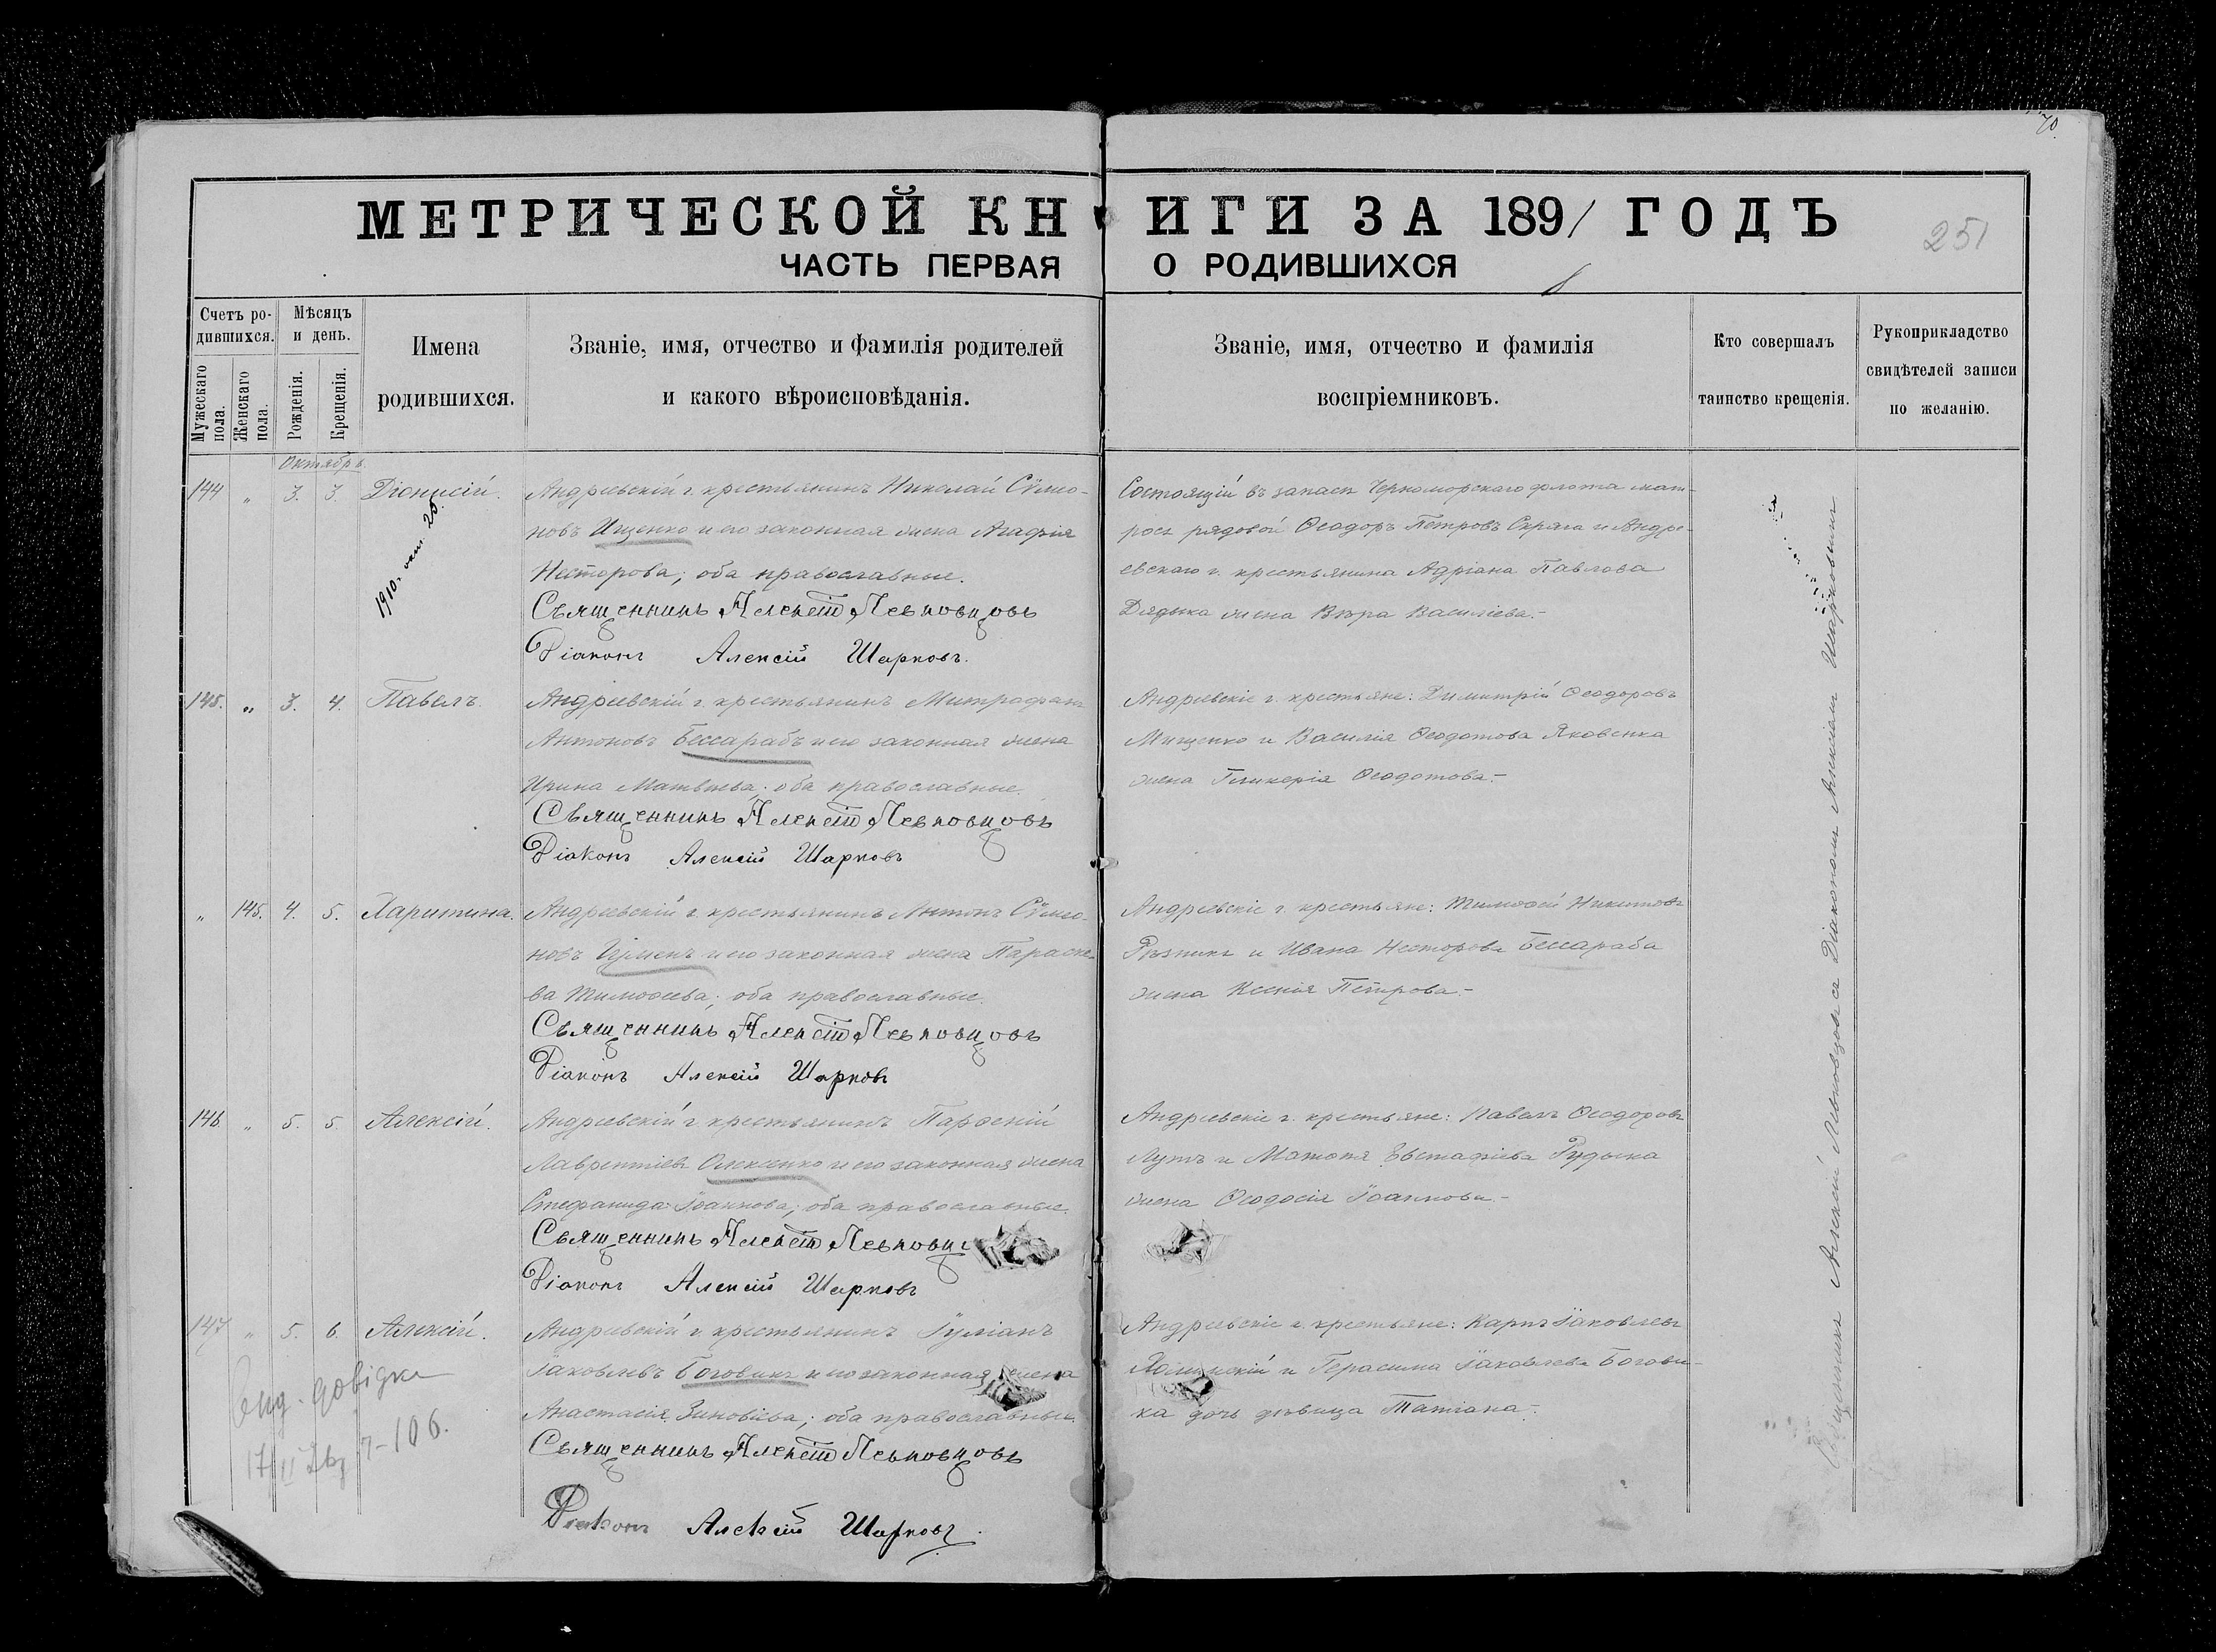 70.
МЕТРИЧЕСКОЙ КНИГИ ЗА 1891 ГОДЪ
251
ЧАСТЬ ПЕРВАЯ О РОДИВШИХСЯ
Счетъ ро-
дившихся.
Мужескаго пола.
Женскаго пола.
Мѣсяцъ
и день.
Рожденія.
Крещенія.
Имена
родившихся.
Званіе, имя, отчество и фамилія родителей
и какого вѣроисповѣданія.
Званіе, имя, отчество и фамилія
воспріемниковъ.
Кто совершалъ
таинство крещенія.
Рукоприкладство
свидѣтелей записи
по желанію.
Октябрь
144 " 3. 3. Діонисій.
1910. окт. 25.
Андреевскій г. крестьянинъ Николай Сѵмео-
новъ Ищенко и его законная жена Агафія
Несторова; оба православные.
Священникъ Алексій Левковцовъ
Діаконъ Алексій Шарковъ.
Состоящій въ запасѣ Черноморскаго флота мат-
росъ рядовой Ѳеодоръ Петровъ Скряга и Андре-
евскаго г. крестьянина Адріана Павлова
Дядька жена Вѣра Василіева.-
145. " 3. 4. Павелъ.
Андреевскій г. крестьянинъ Митрофанъ
Антоновъ Бессарабъ и его законная жена
Ирина Матвѣева; оба православные.
Священникъ Алексій Левковцовъ
Діаконъ Алексій Шарковъ
Андреевскіе г. крестьяне: Димитрій Ѳеодоровъ
Мищенко и Василія Ѳеодотова Яковенка
жена Гликерія Ѳеодотова.-
" 145. 4. 5. Харитина.
Андреевскій г. крестьянинъ Антонъ Сѵмео-
новъ и его законная жена Параске-
ва Тимоѳеева; оба православные.
Священникъ Алексій Левковцовъ
Діаконъ Алексій Шарковъ
Андреевскіе г. крестьяне: Тимоѳей Никитовъ
Рѣзникъ и Ивана Несторова Бессараба
жена Ксенія Петрова.-
146 " 5. 5. Алексій.
Андреевскій г. крестьянинъ Парѳеній
Лаврентіевъ Олексенко и его законная жена
Стефанида Іоаннова; оба православные.
Священникъ Алексій Левковц
Діаконъ Алексій Шарковъ
Андреевскіе г. крестьяне: Павелъ Ѳеодоровъ
Лутъ и Матѳея Евстафіева Рудька
жена Ѳеодосія Іоаннова.-
147 " 5. 6. Алексій.
Андреевскій г. крестьянинъ Іуліанъ
Іаковлевъ Боговикъ и его законная жена
Анастасія Зиновіева; оба православные.
Священникъ Алексій Левковцовъ
Діаконъ Алексій Шарковъ.
Андреевскіе г. крестьяне: Карпъ Іаковлевъ
и Герасима Іаковлева Богови-
ка дочь дѣвица Татіана.-
Священникъ Алексій Левковцовъ съ Діакономъ Алексіемъ Шарковымъ
довідка